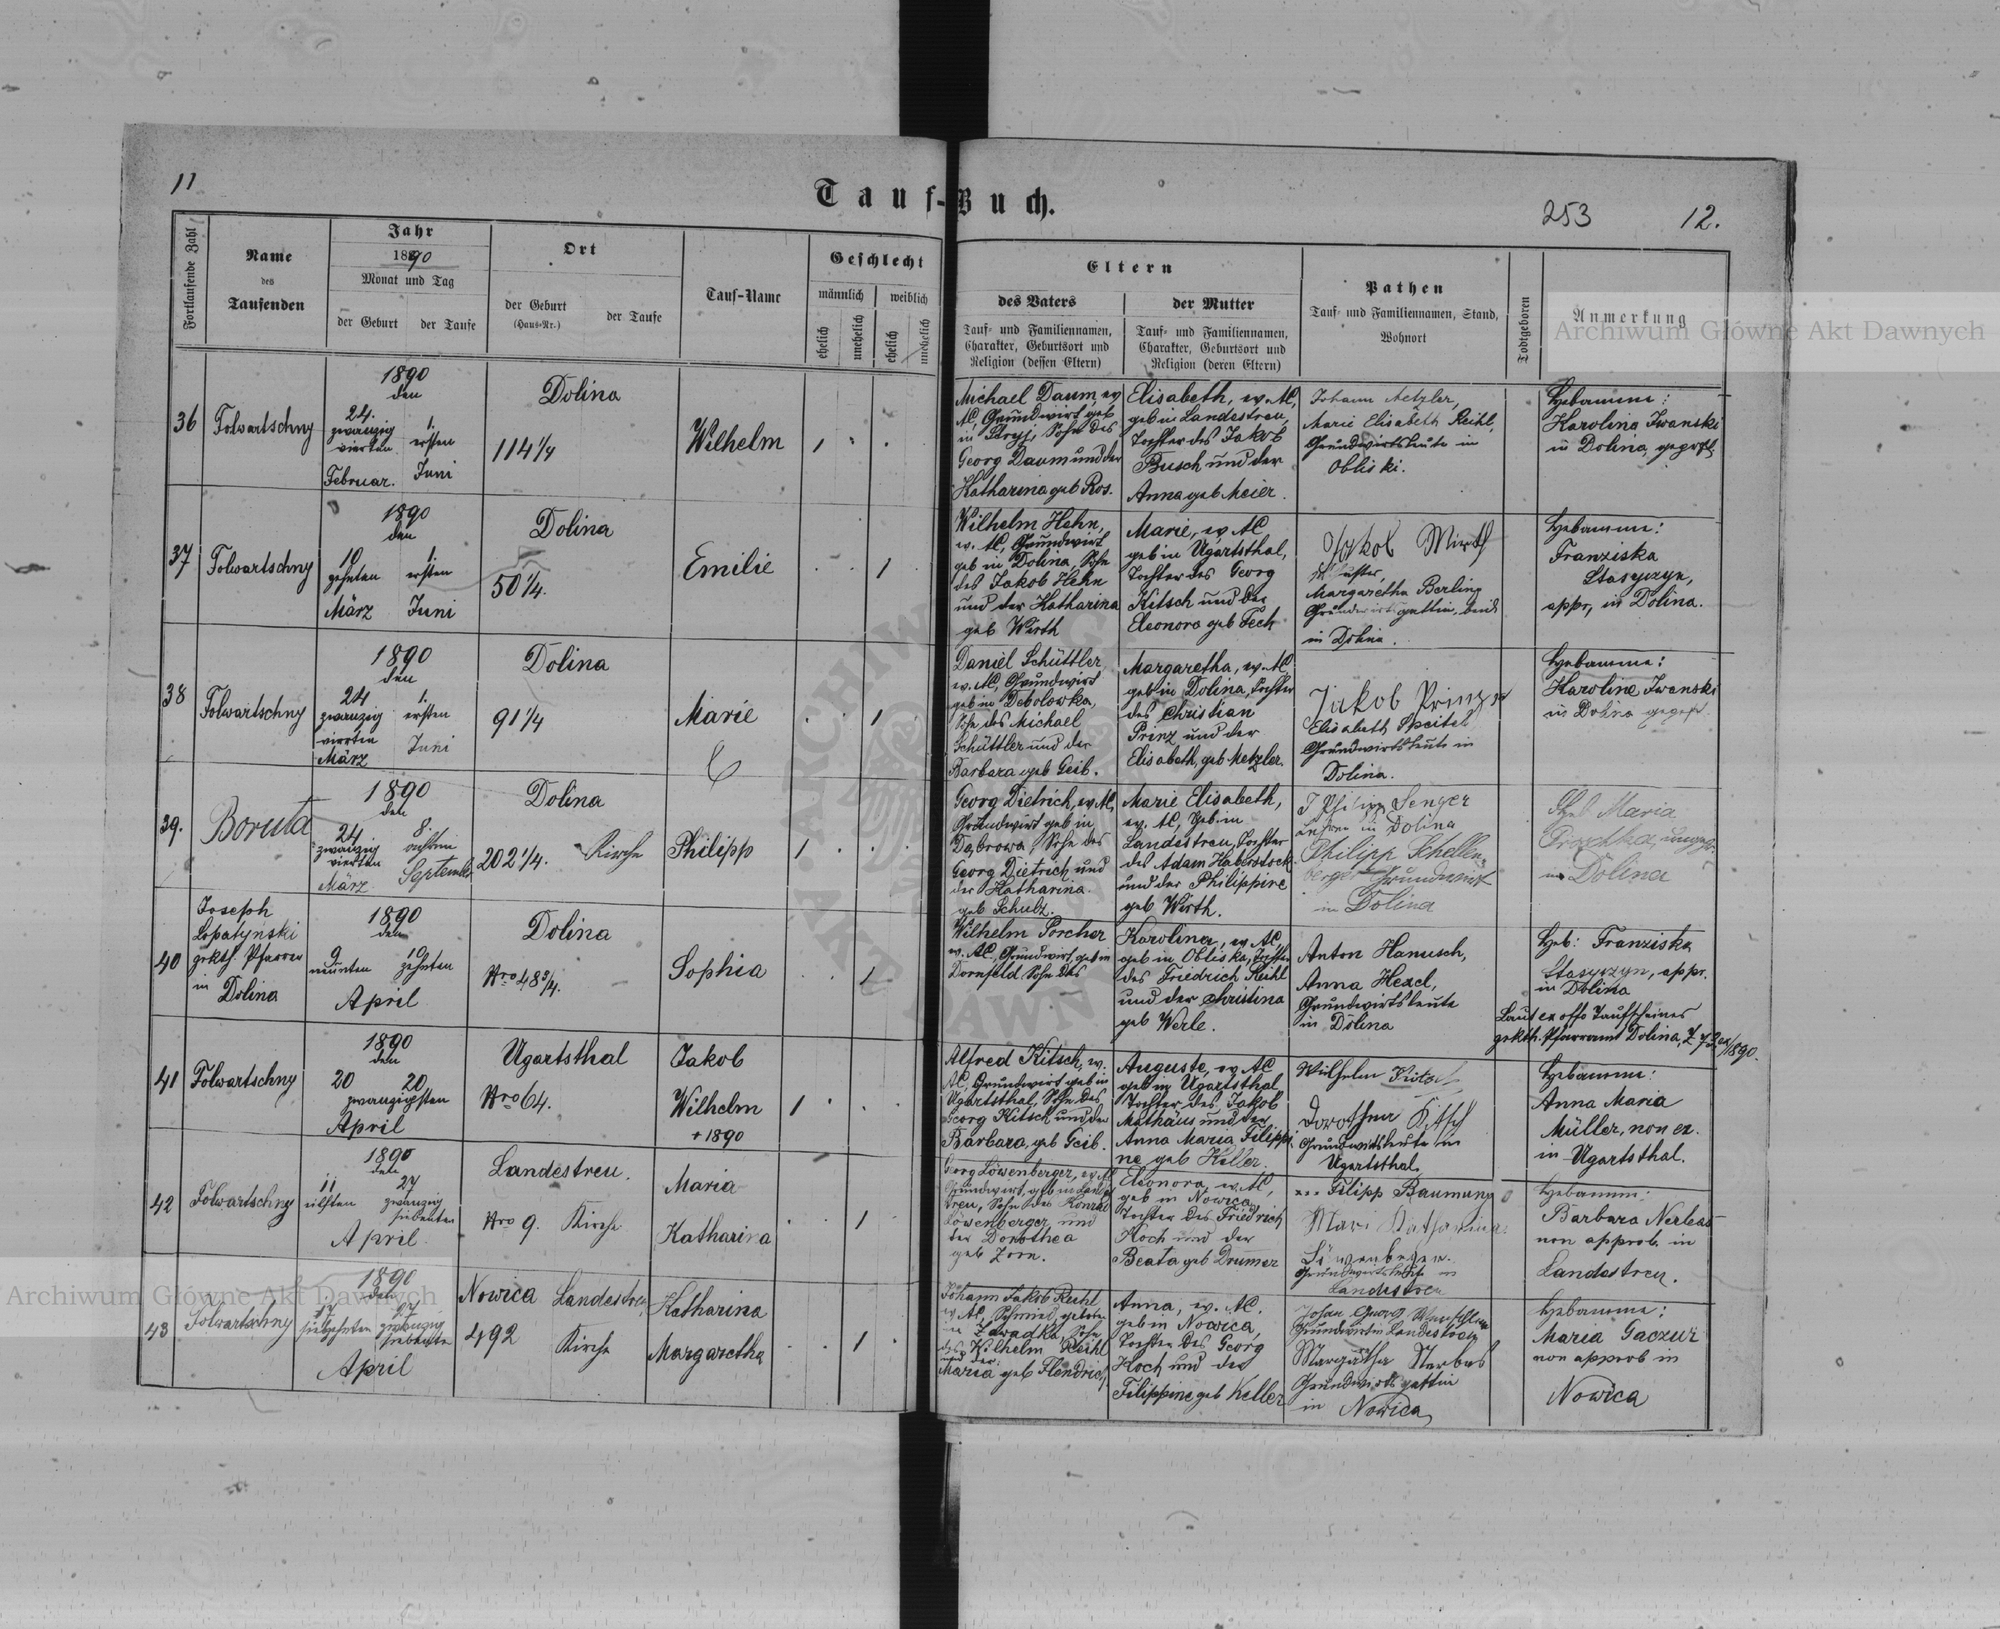 11
Tauf-Buch.
253
12.
Fortlaufende Zahl
Name
des
Taufenden
Jahr
1890
Monat und Tag
der Geburt
der Taufe
Ort
der Geburt
(Haus-Nr.)
der Taufe
Tauf-Name
Geschlecht
männlich
weiblich
ehelich
unehelich
ehelich
unehelich
Eltern
des Vaters
Tauf- und Familiennamen,
Charakter, Geburtsort und
Religion (dessen Eltern)
der Mutter
Tauf- und Familiennamen,
Charakter, Geburtsort und
Religion (deren Eltern)
Pathen
Tauf- und Familiennamen, Stand,
Wohnort
Todtgeboren
Anmerkung
Archiwum Główne Akt Dawnych
36
Folwartschny
1890
den
24.
zwanzig
vierten
Februar.
1.
ersten
Juni
Dolina
114 1/4
Wilhelm
1
Michael Daum, ev
AC, Grundwirt geb
in Stryj, Sohn des
Georg Daum und der
Katharina geb Ros.
Elisabeth, ev. AC,
geb in Landestreu,
Tochter des Jakob
Busch und der
Anna geb Meier.
Johann Metzler,
Marie Elisabeth Reihl,
Grundwirtsleute in
Obliski.
Hebamme:
Karolina Iwanski
in Dolina, geprft.
37
Folwartschny
1890
den
10
zehnten
März
1.
ersten
Juni
Dolina
50 1/4.
Emilie
1
Wilhelm Hehn,
ev. AC, Grundwirt
geb in Dolina, Sohn
des Jakob Hehn
und der Katharina
geb Wirth
Marie, ev. AC
geb in Ugartsthal,
Tochter des Georg
Kitsch und der
Eleonora geb Fech
Jakob Wirth
Schuster,
Margaretha Berling
Grundwirtsgattin, beide
in Dolina.
Hebamme:
Franziska
Stasyszyn,
appr, in Dolina.
38
Folwartschny
1890
den
24
zwanzig
vierten
März
1.
ersten
Juni
Dolina
91 1/4
Marie
1
Daniel Schüttler
ev. AC, Grundwirt
geb in Debolowka,
Sohn des Michael
Schüttler und der
Barbara geb Geib.
Margaretha, ev. AC
geb in Dolina, Tochter
des Christian
Prinz und der
Elisabeth, geb Metzler.
Jakob Prinz
Elisabeth Speitel
Grundwirtsleute in
Dolina.
Hebamme:
Karoline Iwanski
in Dolina geprft.
39.
Boruta
1890
den
24.
zwanzig
vierten
März
8.
achten
September
Dolina
202 1/4.
Kirche
Philipp
1
Georg Dietrich, ev AC,
Grundwirt geb in
Dąbrowa, Sohn des
Georg Dietrich und
der Katharina
geb Schulz.
Marie Elisabeth,
ev. AC, Geb in
Landestreu, Tochter
des Adam Haberstock
und der Philippine
geb Wirth.
J. Philipp Senger
Lehrer in Dolina
Philipp Schellen-
berger Grundwirt
in Dolina
Heb Maria
in Dolina
40
Joseph
Lopatynski
grkth. Pfarrer
in
Dolina
1890
den
9
neunten
10
zehnten
April
Dolina
Nro 48 3/4.
Sophia
1
Wilhelm Porcher
ev. AC, Grundwirt, geb in
Dornfeld Sohn des
Karolina, ev AC,
geb in Obliska, Tochter
des Friedrich Reihl
und der Christina
geb Werle.
Anton Hanusch,
Anna Hexel,
Grundwirtsleute
in Dolina
Heb: Franziska
Stasyszyn, appr.
in Dolina
Laut ex offo Taufscheines
grkth. Pfarramt Dolina,
41
Folwartschny
1890
den
20
20
zwanzigsten
April
Ugartsthal
Nro 64.
Jakob
Wilhelm
+ 1890
1
Alfred Kitsch, ev.
AC, Grundwirt geb in
Ugartsthal, Sohn des
Georg Kitsch und der
Barbara, geb Geib.
Auguste, ev AC
geb in Ugartsthal
Tochter des Jakob
Mathäus und der
Anna Maria Filippi
ne geb Keller.
Wilhelm Kitsch
Dorothea Kitsch
Grundwirtsleute in
Ugartsthal.
Hebamme:
Anna Maria
Müller, non ex.
in Ugartsthal.
42
Folwartschny
1890
den
11
eilften
27
zwanzig
siebenten
April
Landestreu.
Nro 9.
Kirche
Maria
Katharina
1
Georg Löwenberger, ev AC
Grundwirt, geb in Landes
treu, Sohn des Konrad
Löwenberger und
der Dorothea
geb Zorn.
Eleonora, ev. AC,
geb in Nowica,
Tochter des Friedrich
Koch und der
Beata geb Drummer
Filipp Baumung
Mari Katharina
Löwenberger.
Grundwirtsleute in
Landestreu
Hebamme:
Barbara Nerbas
non approb. in
Landestreu.
43
Folwartschny
1890
den
17
siebzehnten
27
zwanzig
siebente
April
Nowica
492
Landestreu,
Kirche
Katharina
Margaretha
1
Johann Jakob Reihl
ev AC, Schmied, geboren
in Zawadka, Sohn
des Wilhelm Reihl
und der
Maria geb Flendrich
Anna, ev. AC.
geb in Nowica,
Tochter des Georg
Koch und der
Filippine geb Keller
Johan Georg
Grundwirt in Landestreu
Margaretha Nerbas
Grundwirtsgattin
in Nowica
Hebamme:
Maria Gaczur
non approb in
Nowica
Archiwum Główne Akt Dawnych